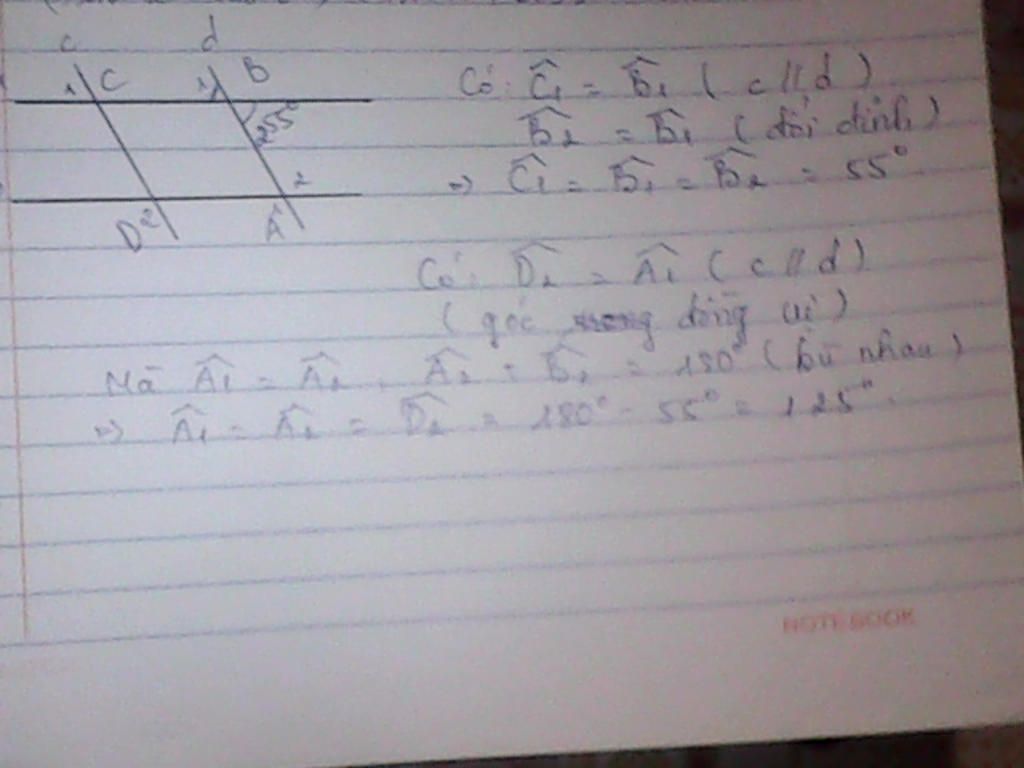 c d
1 C 1 B
2 55°
2
D 2 A
Có: Ĉ₁ = B̂₁ ( c // d )
B̂₂ = B̂₁ ( đối đỉnh )
=> Ĉ₁ = B̂₁ = B̂₂ = 55°
Có: D̂₂ = Â₁ ( c // d )
( góc đồng vị )
Mà Â₁ = Â₂ , Â₂ + B̂₂ = 180° ( bù nhau )
=> Â₁ = Â₂ = D̂₂ = 180° - 55° = 125°.
NOTEBOOK